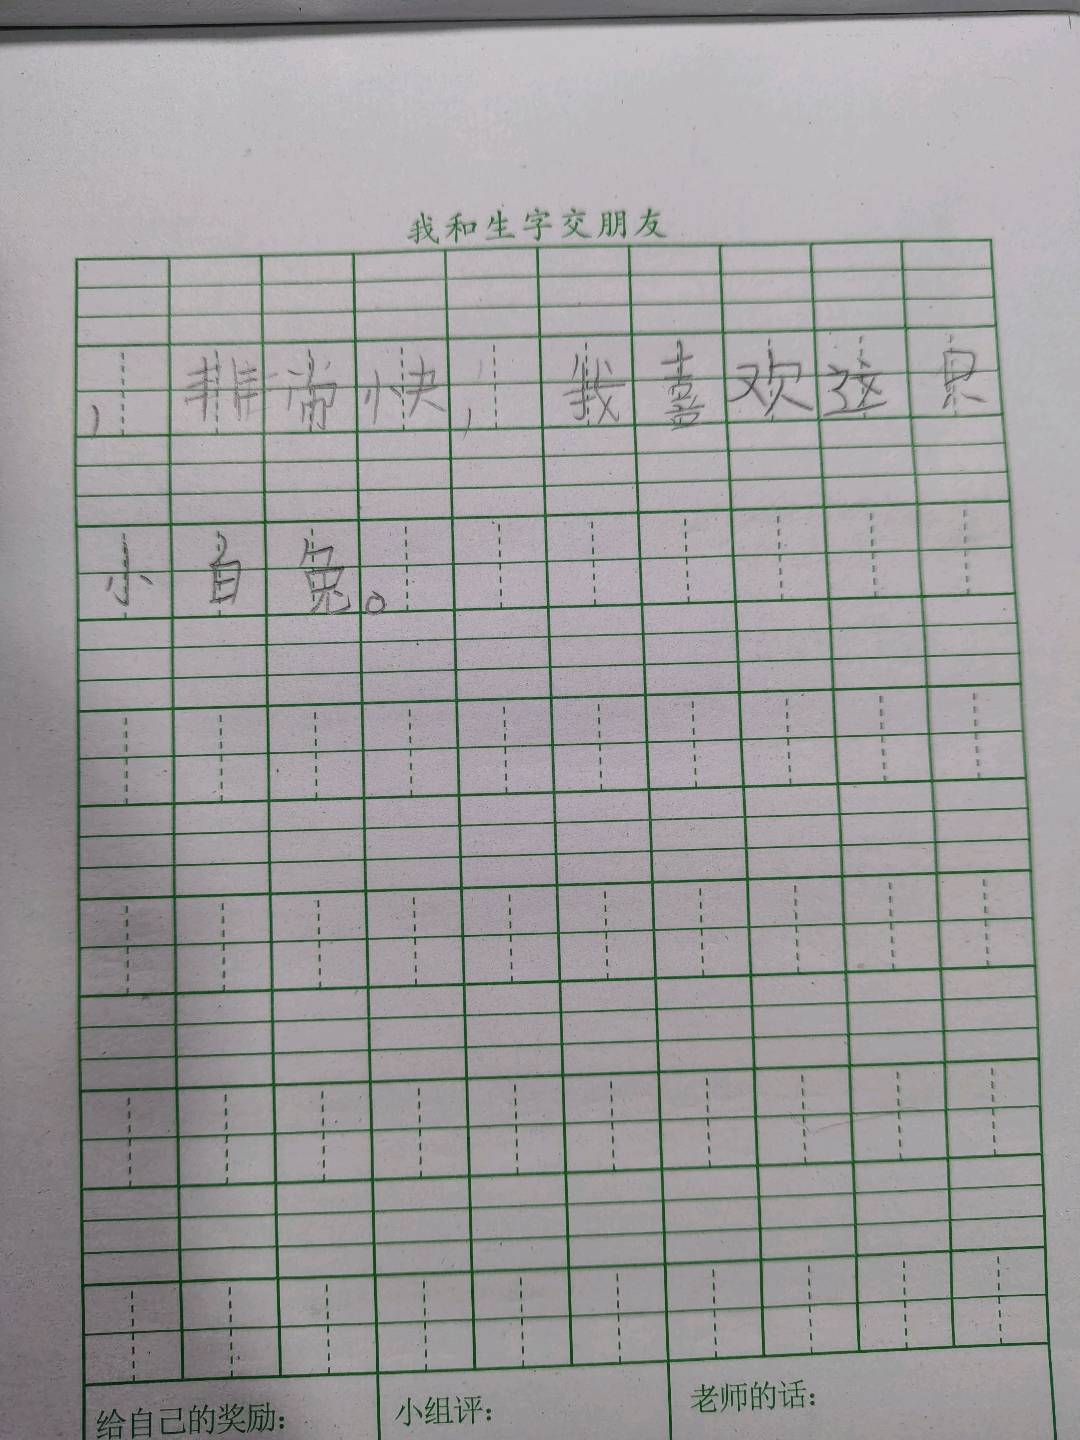 我和生字交朋友
，非常快，我喜欢这只
小白兔。
给自己的奖励： 小组评： 老师的话：